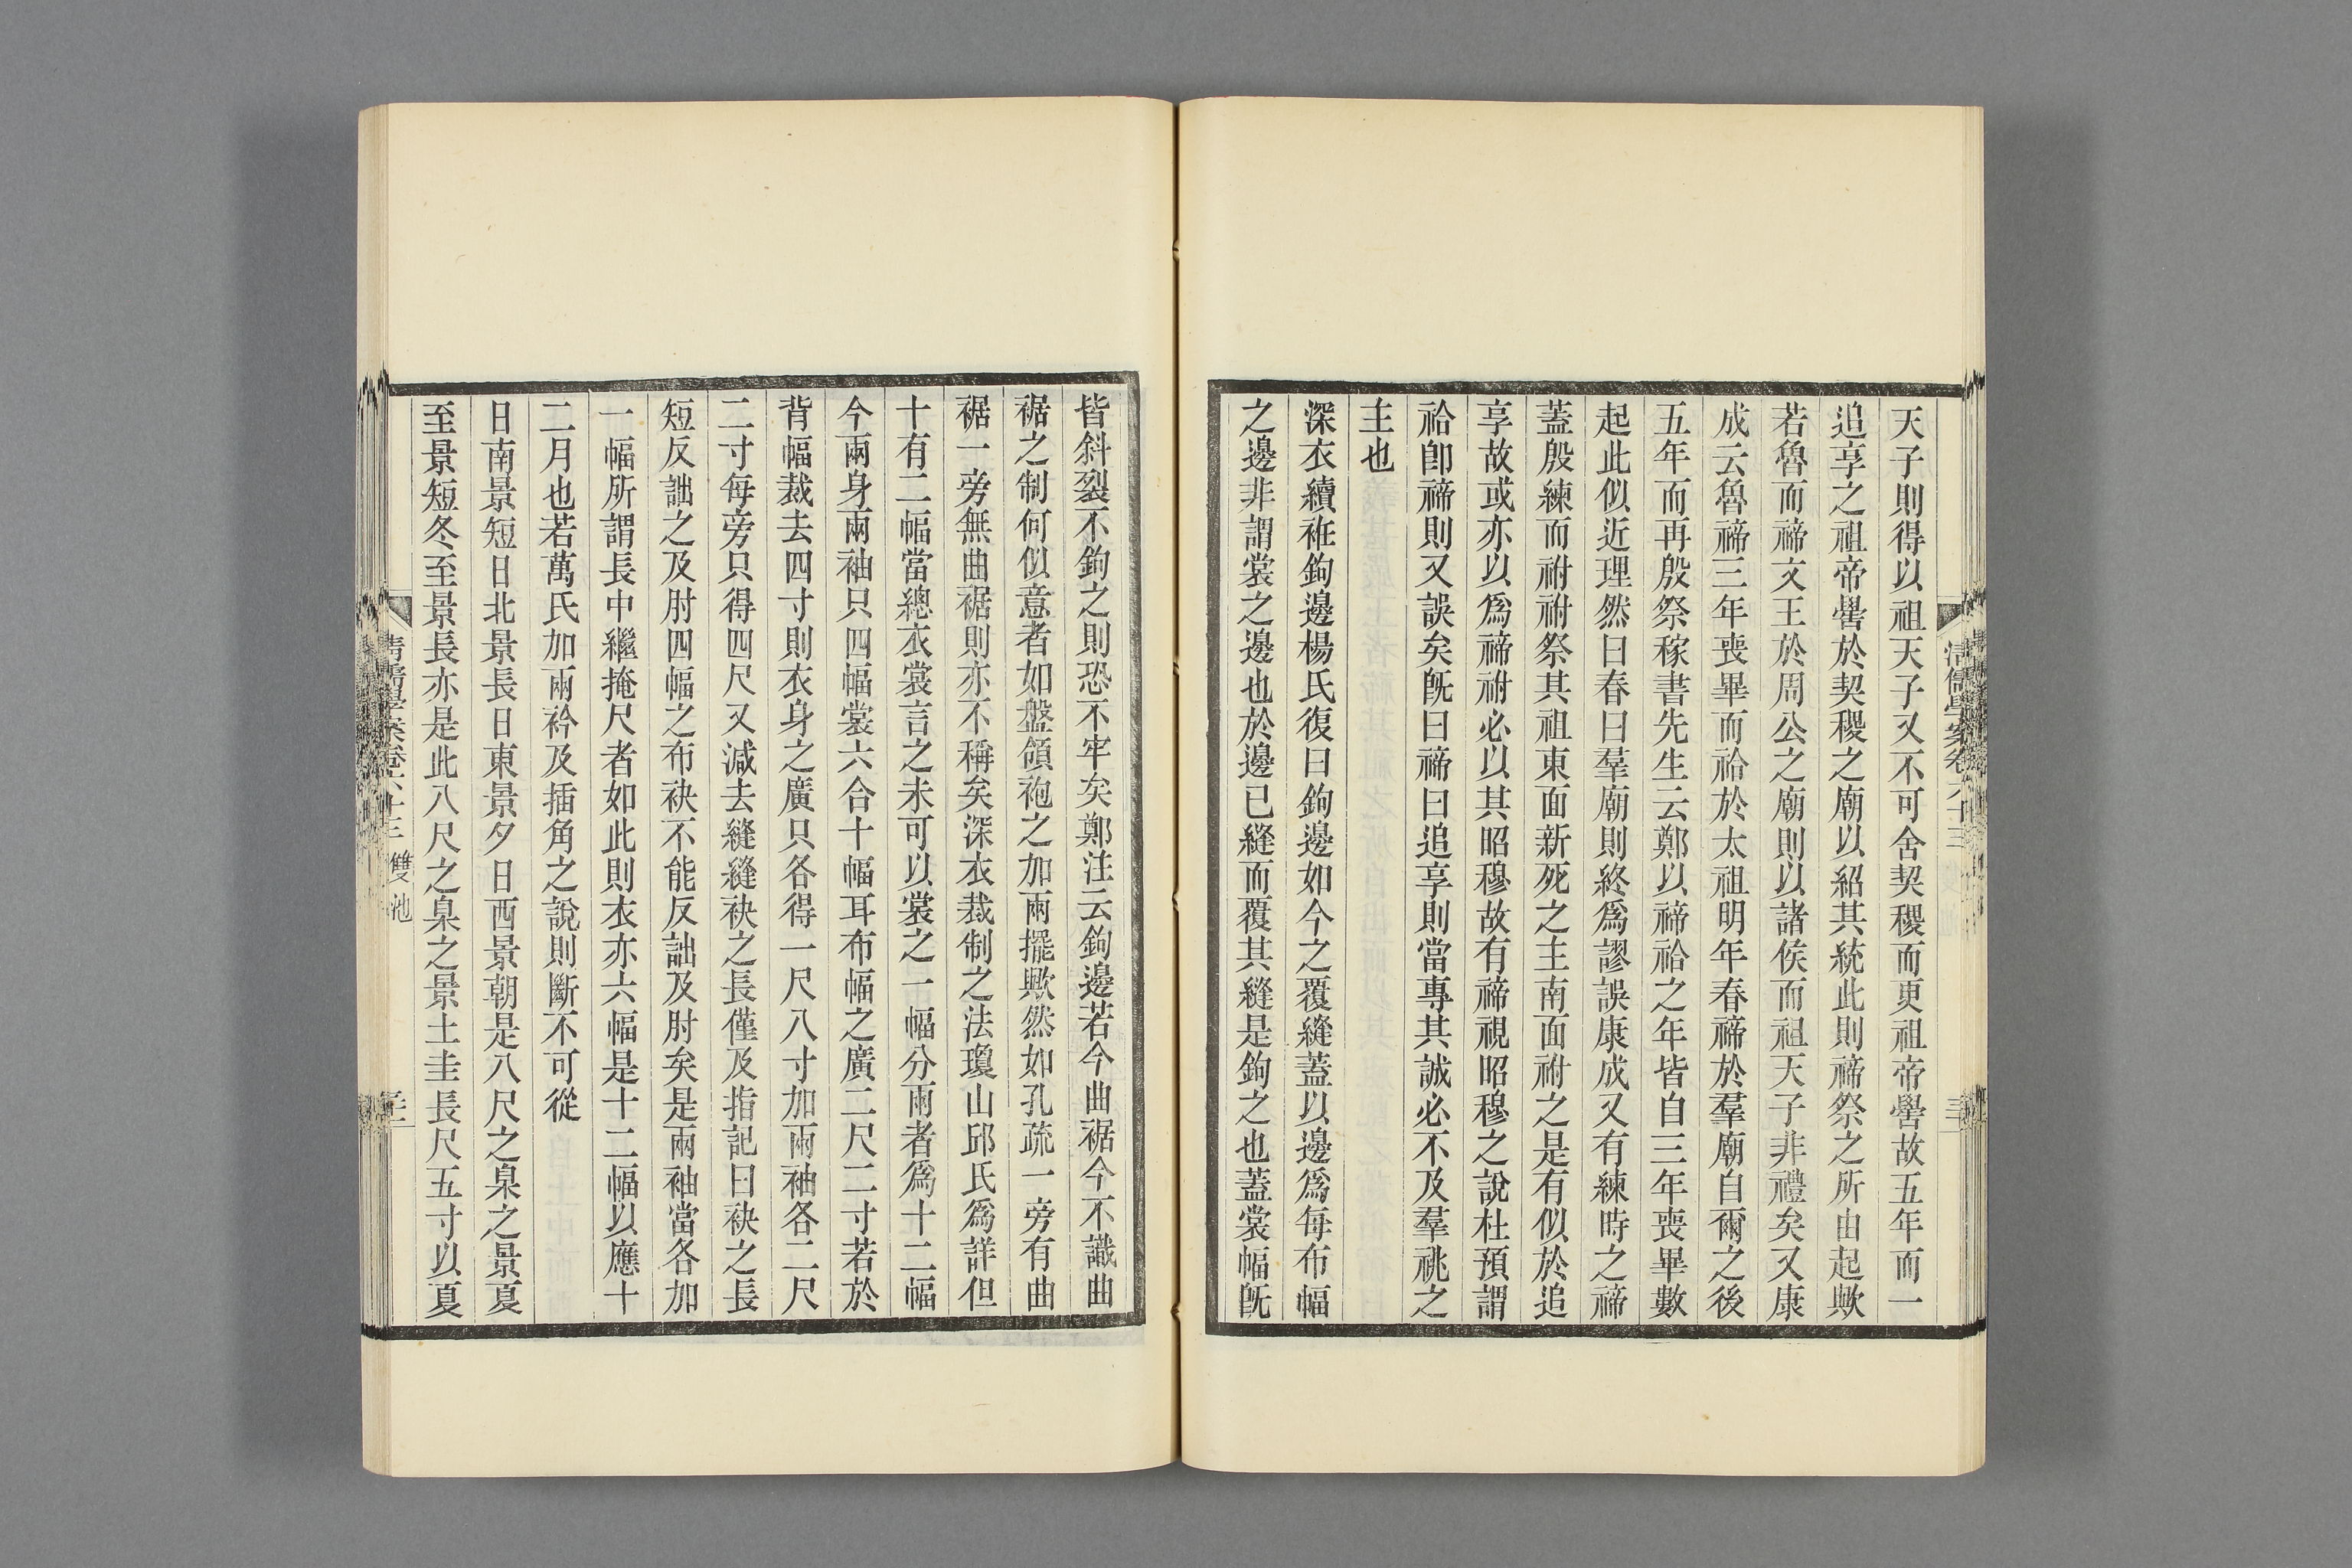 天子則得以祖天子又不可舍契稷而更祖帝嚳故五年而一
追享之祖帝嚳於契稷之廟以紹其統此則禘祭之所由起歟
若魯而禘文王於周公之廟則以諸侯而祖天子非禮矣又康
成云魯禘三年喪畢而祫於太祖明年春禘於羣廟自爾之後
五年而再殷祭稼書先生云鄭以禘祫之年皆自三年喪畢數
起此似近理然曰春曰羣廟則終爲謬誤康成又有練時之禘
蓋殷練而祔祔祭其祖東面新死之主南面祔之是有似於追
享故或亦以爲禘祔必以其昭穆故有禘視昭穆之說杜預謂
祫卽禘則又誤矣旣曰禘曰追享則當專其誠必不及羣祧之
主也
深衣續衽鉤邊楊氏復曰鉤邊如今之覆縫蓋以邊爲每布幅
之邊非謂裳之邊也於邊已縫而覆其縫是鉤之也蓋裳幅旣
皆斜裂不鉤之則恐不牢矣鄭注云鉤邊若今曲裾今不識曲
裾之制何似意者如盤領袍之加兩擺歟然如孔疏一旁有曲
裾一旁無曲裾則亦不稱矣深衣裁制之法瓊山邱氏爲詳但
十有二幅當總衣裳言之未可以裳之一幅分兩者爲十二幅
今兩身兩袖只四幅裳六合十幅耳布幅之廣二尺二寸若於
背幅裁去四寸則衣身之廣只各得一尺八寸加兩袖各二尺
二寸每旁只得四尺又減去縫縫袂之長僅及指記曰袂之長
短反詘之及肘四幅之布袂不能反詘及肘矣是兩袖當各加
一幅所謂長中繼掩尺者如此則衣亦六幅是十二幅以應十
二月也若萬氏加兩衿及插角之說則斷不可從
日南景短日北景長日東景夕日西景朝是八尺之臬之景夏
至景短冬至景長亦是此八尺之臬之景土圭長尺五寸以夏
清儒學案卷六十三
雙池